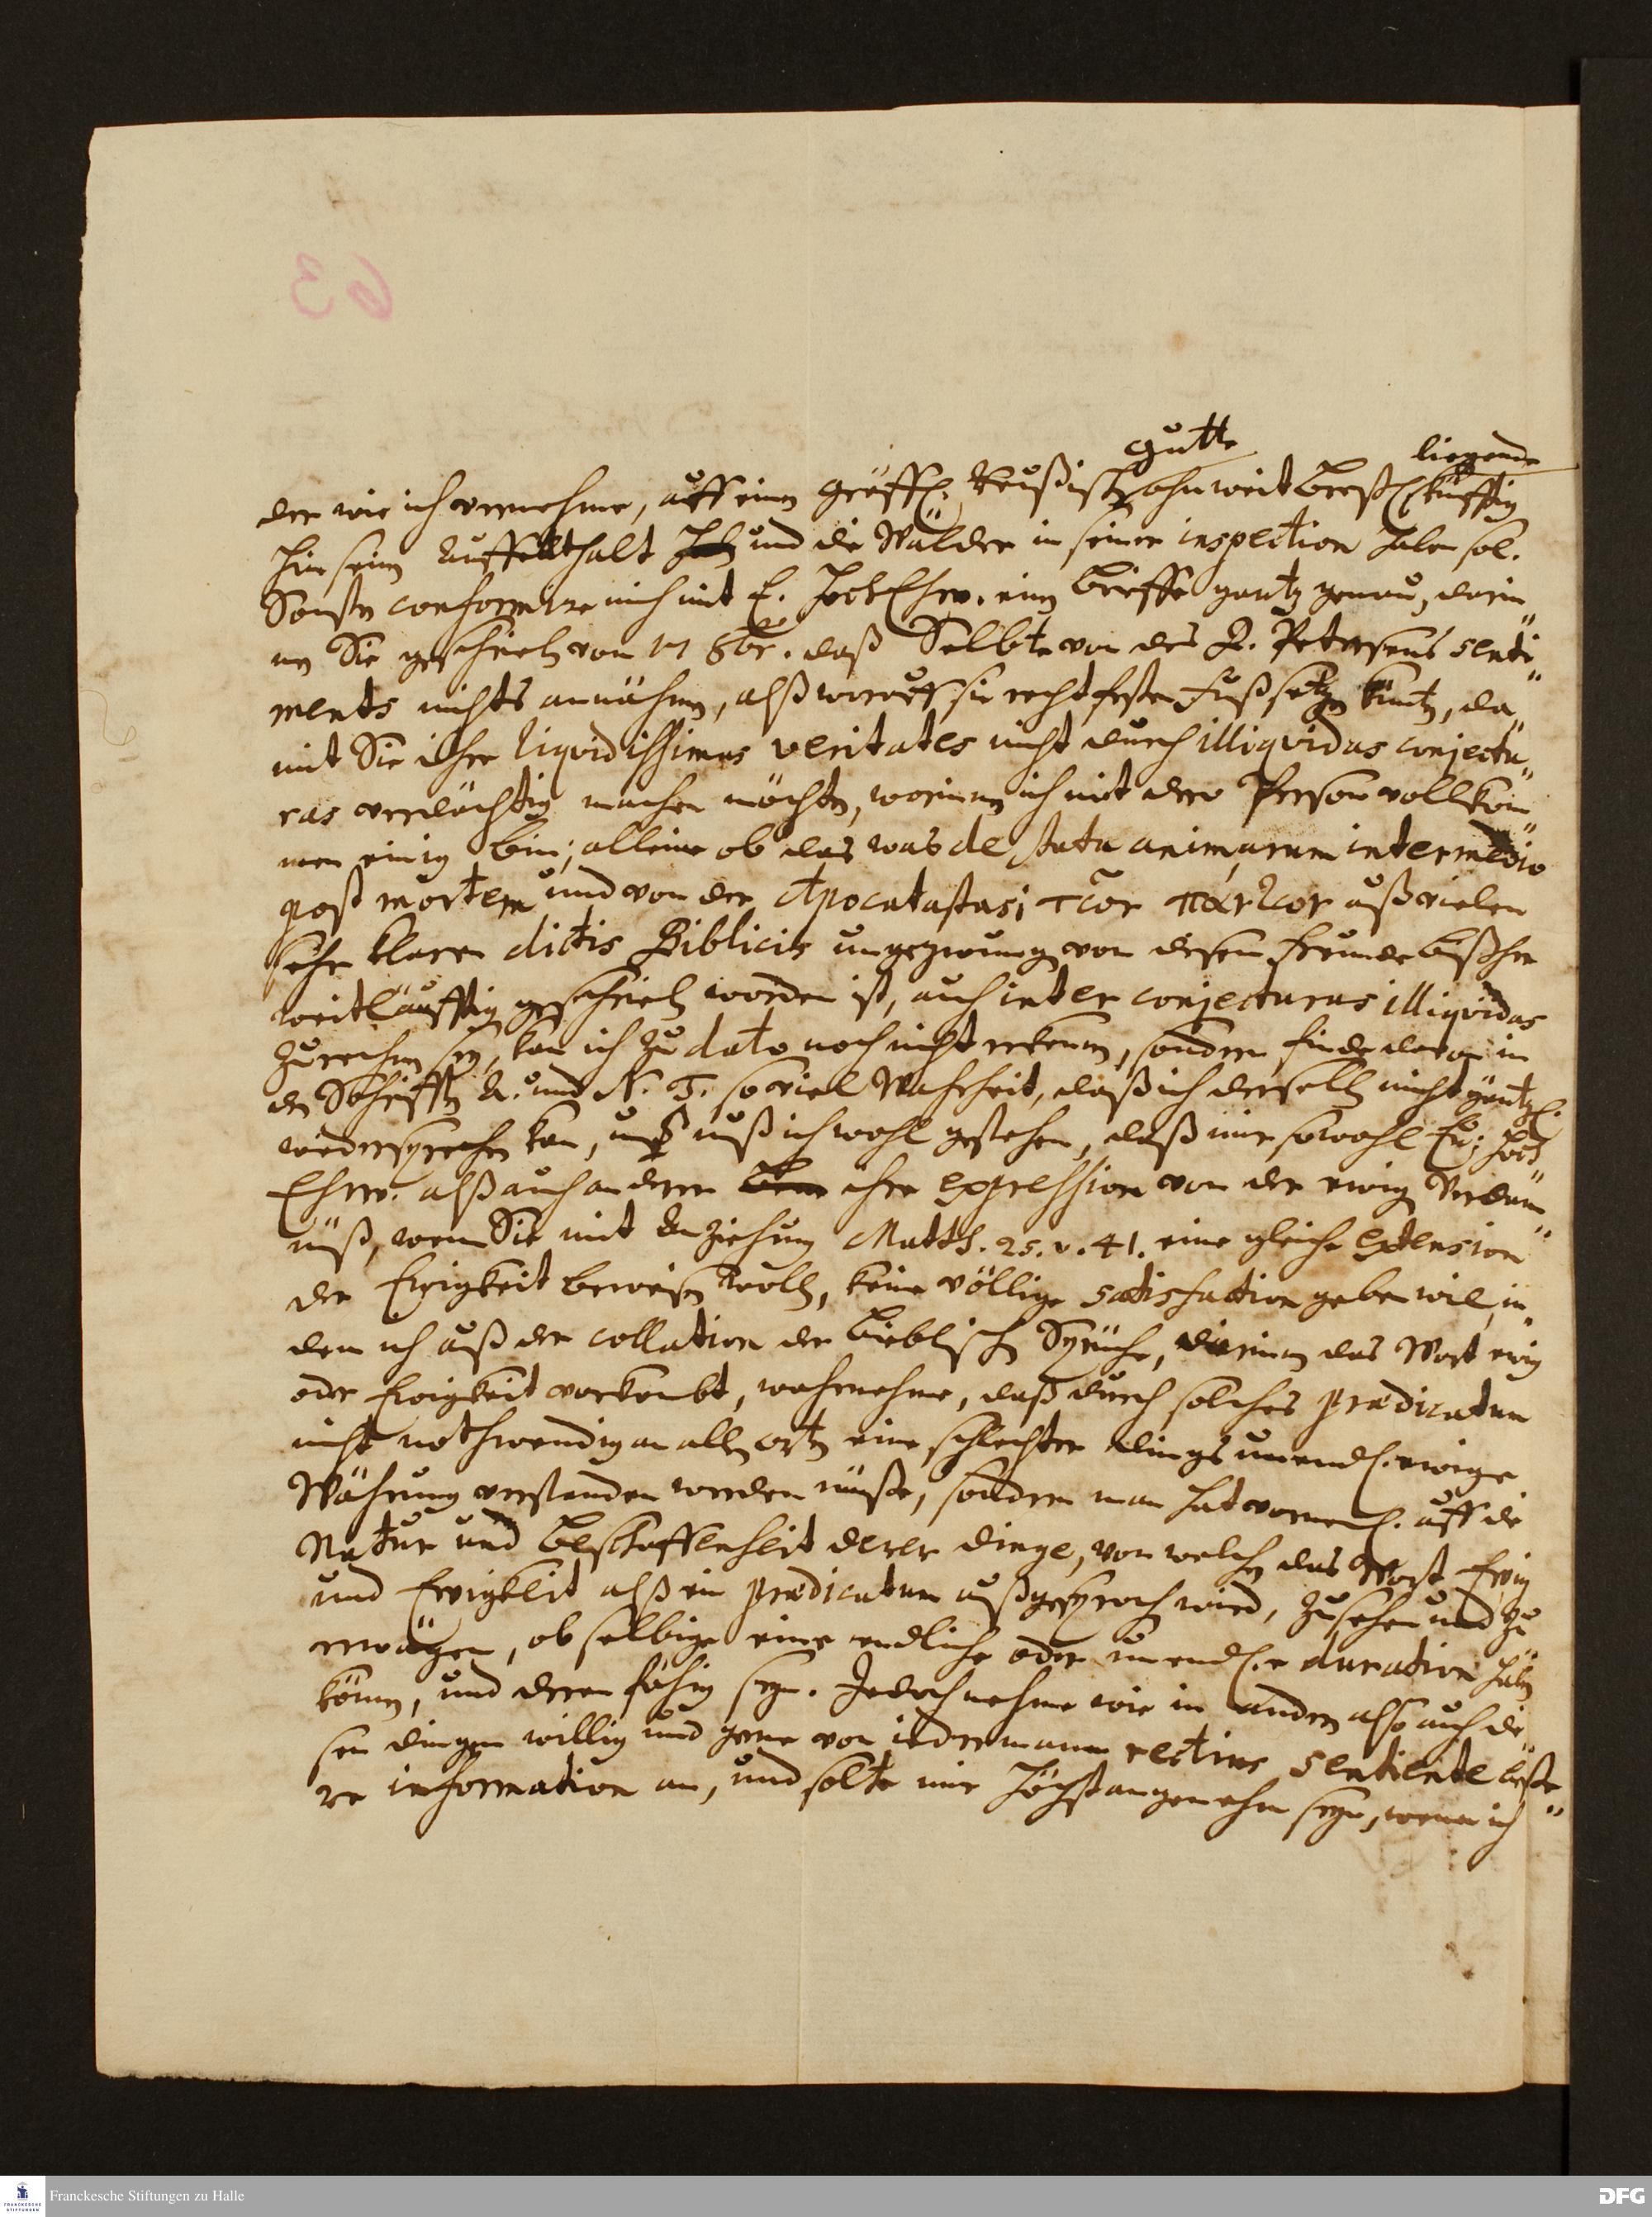 gutte liegende
der wie ich vernehme, auff einen Gräffl. Reußischen ohnweit Greitz künfftig
hin seinen Auffenthalt hab und die Wälder in seiner inspection haben sol.
Sonsten conformire mich mit E. HochEhrw. einen brieffe gantz genau, darin„
nen Sie geschrieben vom 17 8br. daß Selbte von des H. Petersens senti„
ments nichts annähmen, alß worauff sie recht festen Fuß setzen könten, da„
mit Sie ihre liqvidissimas veritates nicht durch illiqvidas conjectu„
ras verdächtig machen möchten, worinnen ich mit dero Person vollkom„
men einig bin; alleine ob das was de statu animarum intermedio
post mortem und von der Apocatastasi τῶν πάντων auß vielen
sehr klaren dictis Biblicis ungezwungen von diesem Freunde bißher
weitläufftig geschrieben worden ist, auch inter conjecturas illiqvidas
zu rechnen sey, kan ich zu dato noch nicht erkennen, sondern finde davon in
den Schrifften A. und N. T. so viel Wahrheit, daß ich derselben nicht gäntzl.
wiedersprechen kan, und muß ich wohl gestehen, daß mir sowohl Ew. Hoch
Ehrw. alß auch anderer ihre expression von der ewigen Verdam„
nüß, wenn Sie mit Anziehung Matth. 25. v. 41. eine gleiche extension
der Ewigkeit beweisen wollen, keine völlige satisfaction geben wil, in„
dem ich auß der collation der bieblischen Sprüche, darinnen das Wort ewig
oder Ewigkeit vorkombt, wahrnehme, daß durch solches prædicatum
nicht nothwendig an allen orten eine schlechter dings unendl. ewige
Währung verstanden werden müsse, sondern man hat vornehml. auff die
Natur und beschaffenheit derer dinge, von welchen das Wort Ewig
und Ewigkeit alß ein prædicatum außgesprochen wird, zu sehen und zu
erwägen, ob selbige eine endliche oder unendl.e duration haben
können, und deren fähig seyn. Jedoch nehme wie in andern also auch die„
sen dingen willig und gerne von iederman rectius sentiente beße„
re information an, und solte mir höchst angenehm seyn, wenn ich
63
Franckesche Stiftungen zu Halle
DFG